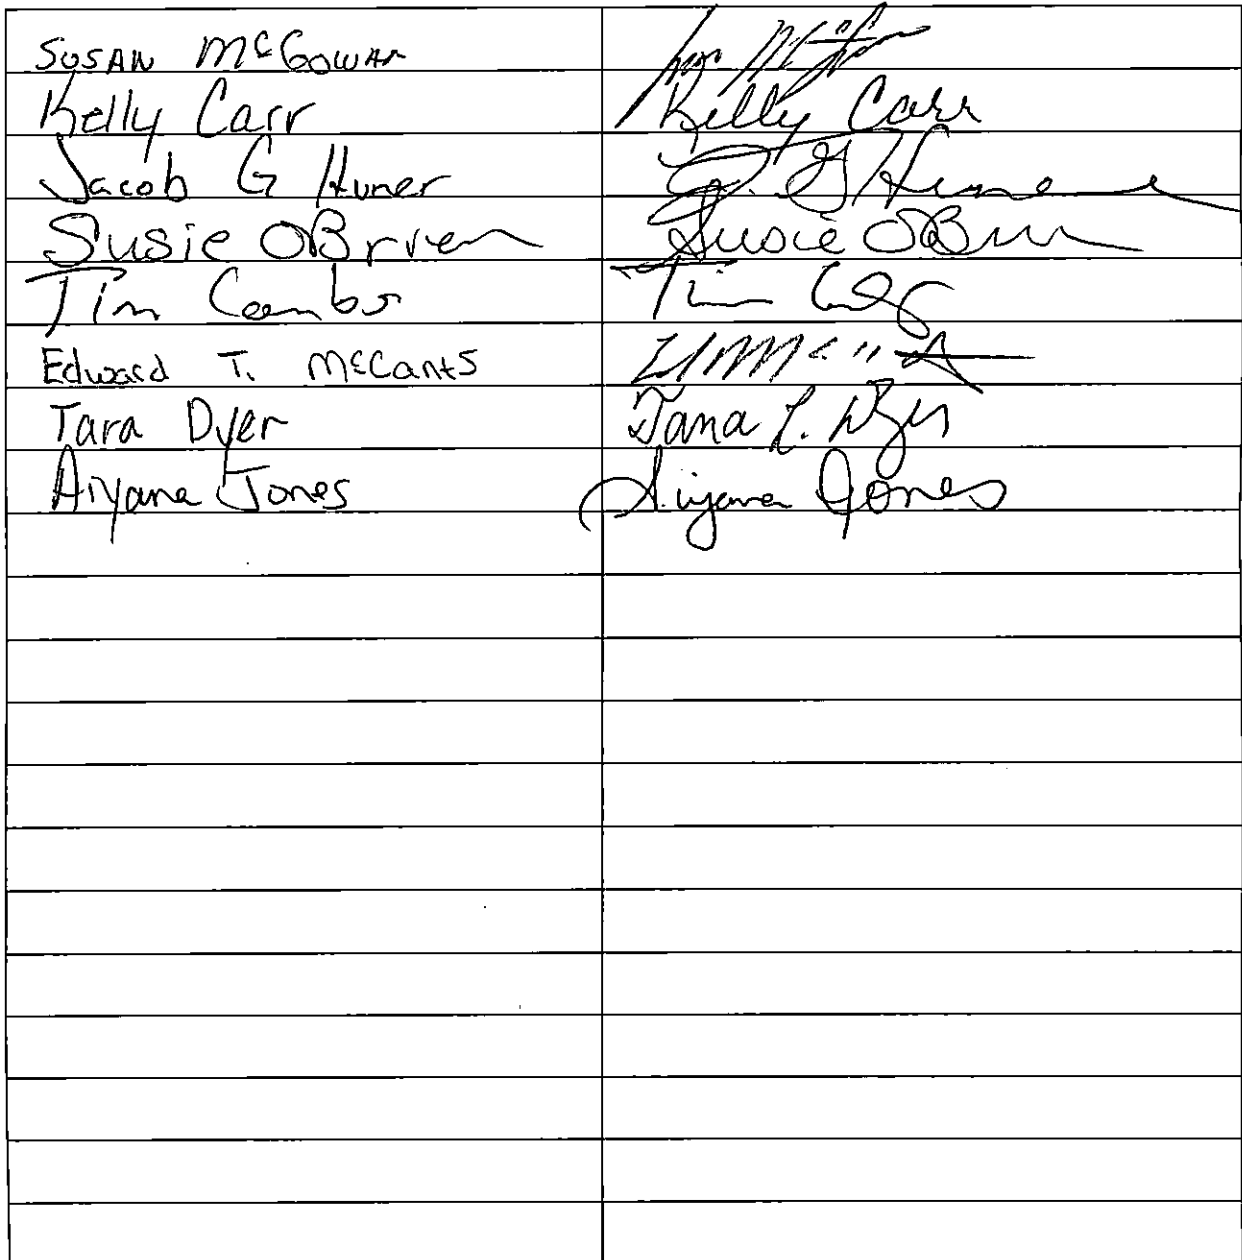 SUSAN McGOWAN
Kelly Carr Kelly Carr
Jacob G Huner J. G Huner
Susie OBrien Susie OBrien
Tim Combs Tim
Edward T. McCants
Tara Dyer Tara L. Dyer
Aiyana Jones Aiyana Jones